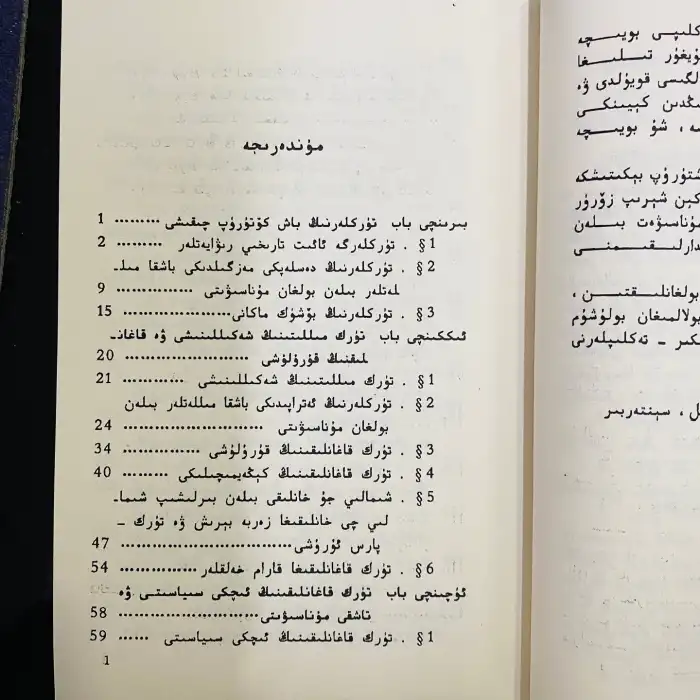 مۇندەرىجە
بىرىنچى باب تۈركلەرنىڭ باش كۆتۈرۈپ چىقىشى ......... 1
§1 . تۈركلەرگە ئائىت تارىخىي رىۋايەتلەر ......... 2
§2 . تۈركلەرنىڭ دەسلەپكى مەزگىلدىكى باشقا مىل-
لەتلەر بىلەن بولغان مۇناسىۋىتى ............... 9
§3 . تۈركلەرنىڭ بۆشۈك ماكانى ..................... 15
ئىككىنچى باب تۈرك مىللىتىنىڭ شەكىللىنىشى ۋە قاغان-
لىقنىڭ قۇرۇلۇشى ........................ 20
§1 . تۈرك مىللىتىنىڭ شەكىللىنىشى ............ 21
§2 . تۈركلەرنىڭ ئەتراپىدىكى باشقا مىللەتلەر بىلەن
بولغان مۇناسىۋىتى ........................... 24
§3 . تۈرك قاغانلىقىنىڭ قۇرۇلۇشى ............... 34
§4 . تۈرك قاغانلىقىنىڭ كېڭەيمىچىلىكى ......... 40
§5 . شىمالىي جۇ خانلىقى بىلەن بىرلىشىپ شىما-
لىي چى خانلىقىغا زەربە بېرىش ۋە تۈرك –
پارس ئۇرۇشى ................................. 47
§6 . تۈرك قاغانلىقىغا قارام خەلقلەر ............... 54
ئۈچىنچى باب تۈرك قاغانلىقىنىڭ ئىچكى سىياسىتى ۋە
تاشقى مۇناسىۋىتى ........................... 58
§1 . تۈرك قاغانلىقىنىڭ ئىچكى سىياسىتى ...... 59
1
كلىپى بويىچە
ئۇيغۇر تىلىغا
لگىسى قويۇلدى ۋە
ڭدىن كېيىنكى
ە، شۇ بويىچە
شتۈرۈپ بېكىتىشكە
كىن شېرىپ زۆرۈر
مۇناسىۋەت بىلەن
دارلىقىمنى
بولغانلىقتىن،
بولالمىغان بولۇشۇم
ىكىر - تەكلىپلەرنى
ل، سېنتەبىر